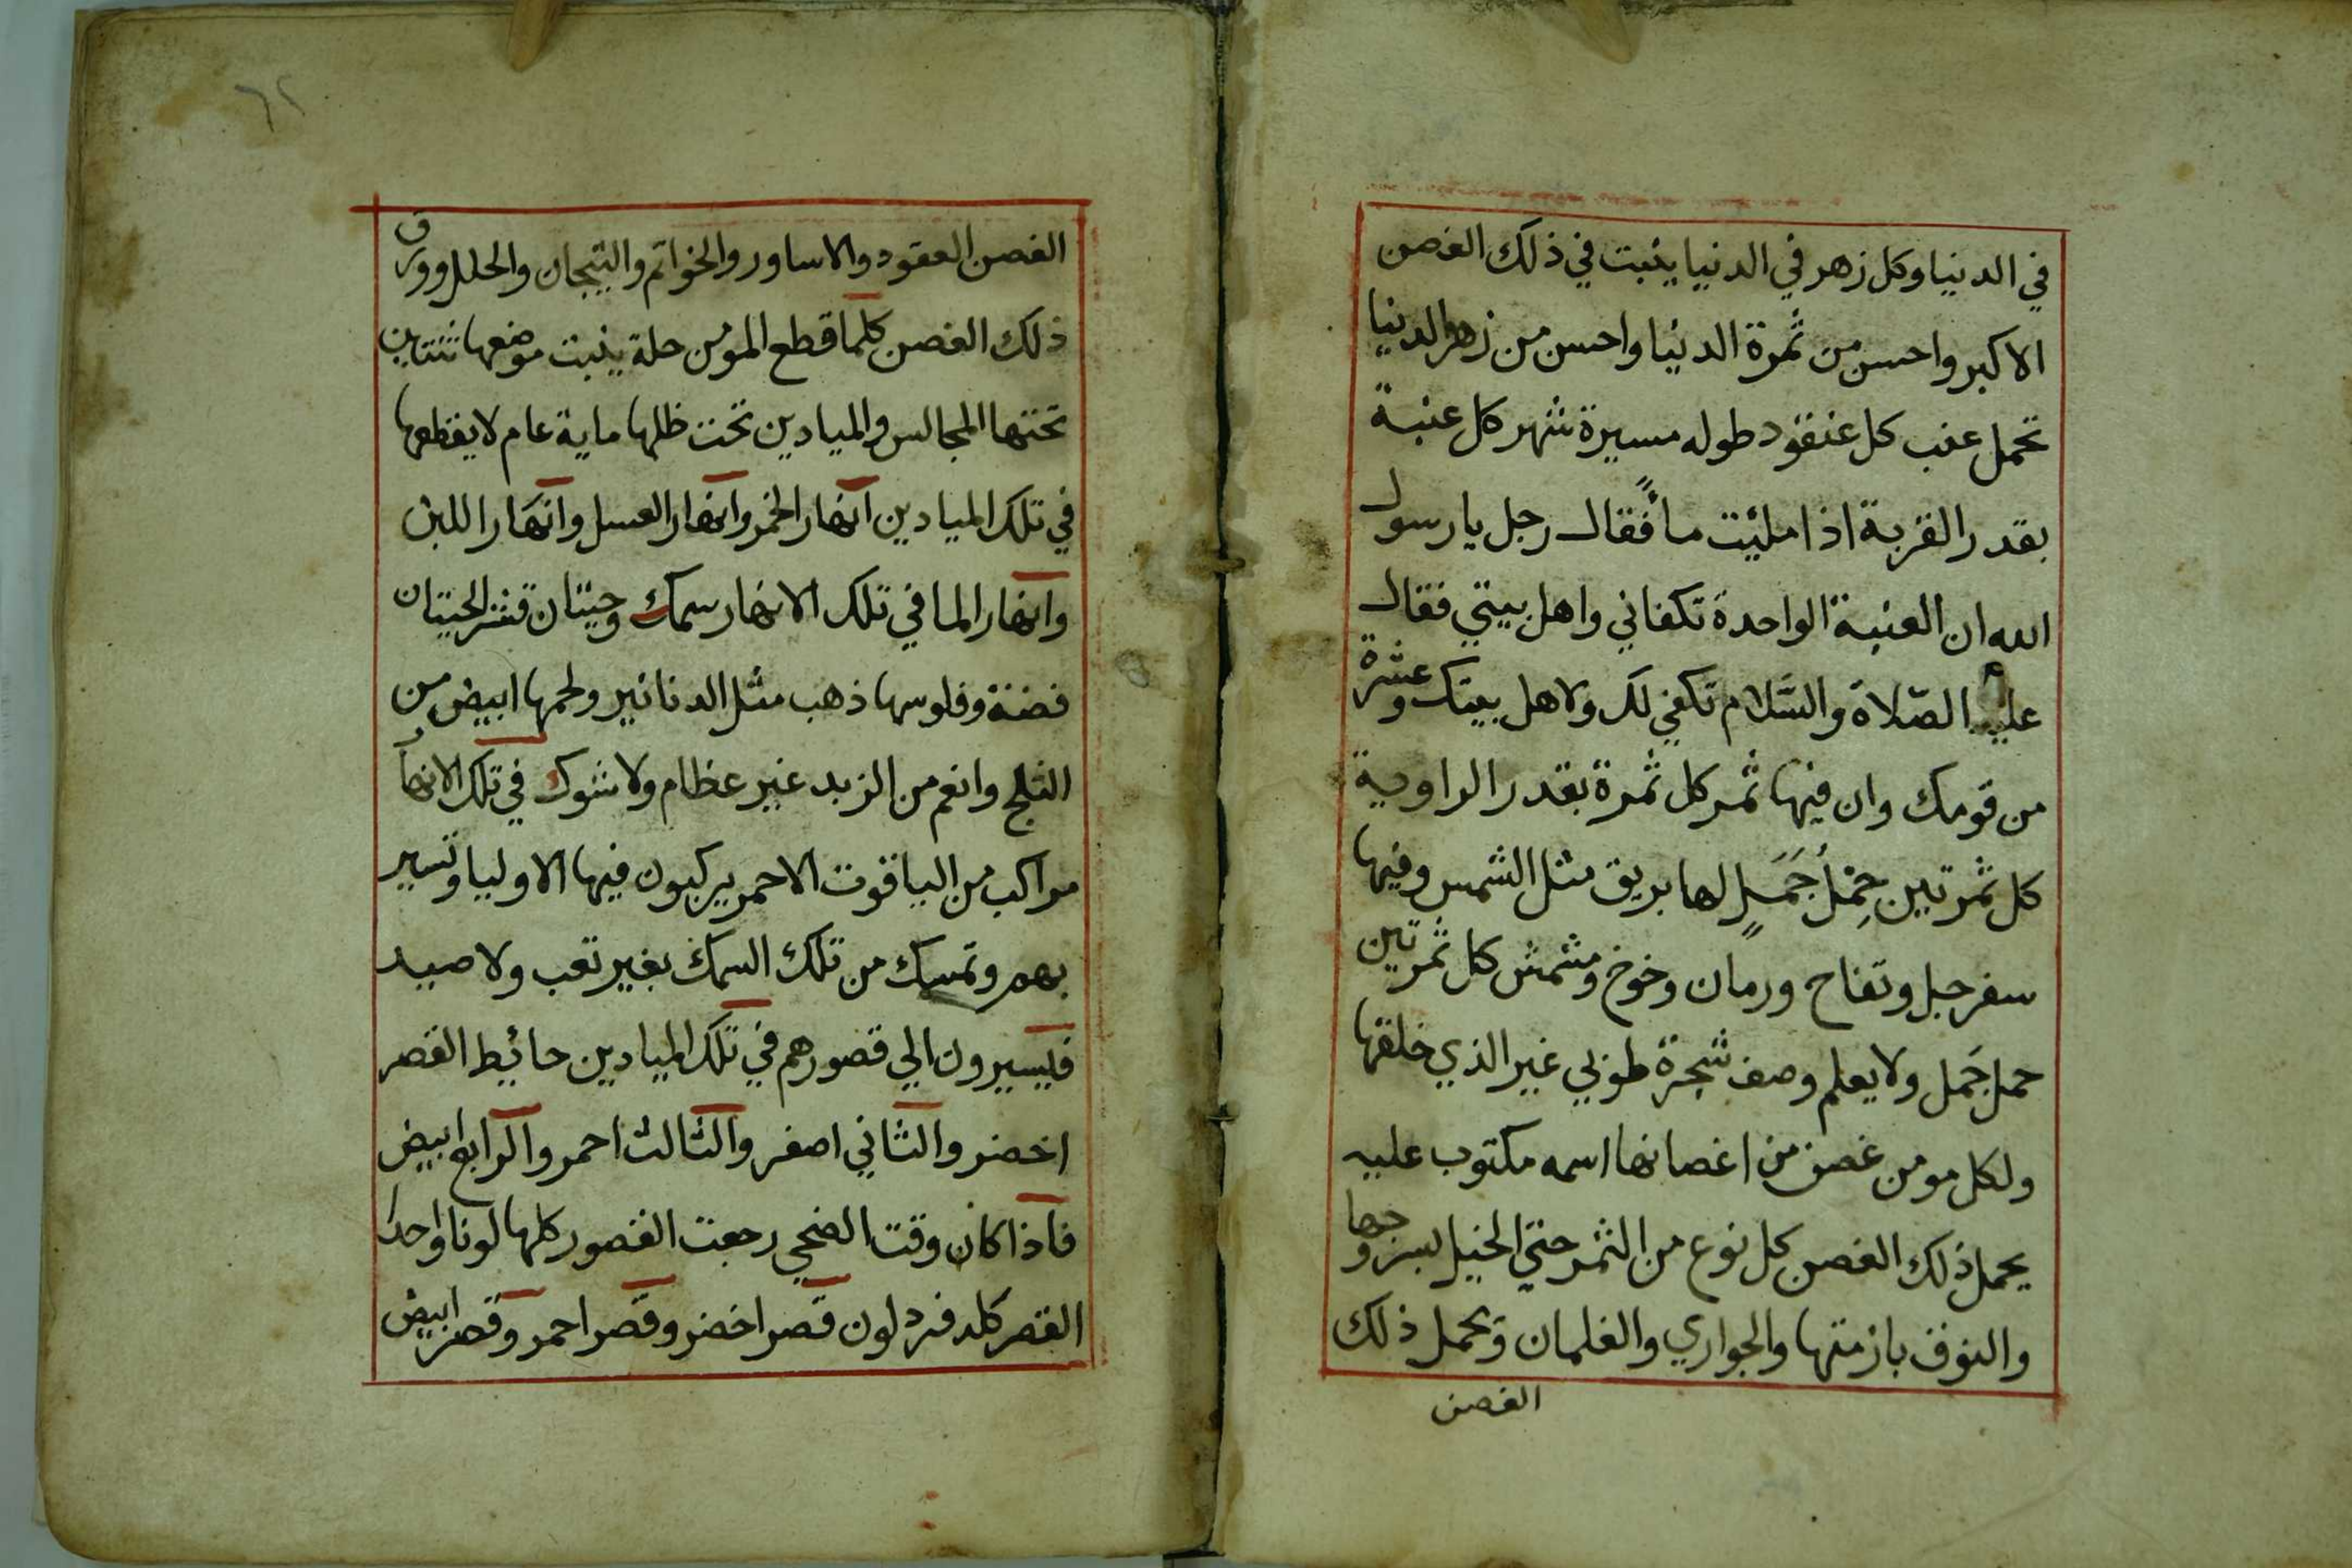 في الدنيا وكل زهر في الدنيا ينبت في ذلك الغصن
الاكبر واحسن من ثمرة الدنيا واحسن من زهر الدنيا
تحمل عنب كل عنقود طوله مسيرة شهر كل عنبة
بقدر القربة اذا مليت مأً فقال رجل يا رسول
الله ان العنبة الواحدة تكفاني واهل بيتي فقال
عليه الصّلاة والسَّلام تكفي لك ولاهل بيتك وعشرة
من قومك وان فيها ثمر كل ثمرة بقدر الراوية
كل ثمرتين حِمْلُ جَمَلٍ لها بريق مثل الشمس وفيها
سفرجل وتفاح ورمان وخوخ ومشمش كل ثمرتين
حمل جَمل ولا يعلم وصف شجرة طوبي غير الذي خلقها
ولكل مومن غصن من اغصانها اسمه مكتوب عليه
يحمل ذلك الغصن كل نوع من الثمر حتي الخيل بسروجها
والنوق بازمتها والجواري والغلمان وتحمل ذلك
الغصن
٦٢
الغصن العقود والاساور والخواتم والتيجان والحلل وورق
ذلك الغصن كلما قطع المومن حلة ينبت موضعها ثنتاين
تحتها المجالس والميادين تحت ظلها ماية عام لا يقطعها
في تلك الميادين انهار الخمر وانهار العسل وانهار اللبن
وانهار الما في تلك الانهار سمك وحيتان قشر الحيتان
فضة وفلوسها ذهب مثل الدنانير ولحمها ابيض من
الثلج وانعم من الزبد غير عظام ولا شوك في تلك الانهار
مراكب من الياقوت الاحمر يركبون فيها الاوليا وتسير
بهم وتمسك من تلك السمك بغير تعب ولا صيد
فيسيرون الي قصورهم في تلك الميادين حائيط القصر
اخضر والثاني اصفر والثالث احمر والرابع ابيض
فاذا كان وقت الضحي رجعت القصور كلها لونا واحدا
القصر كله فرد لون قصر اخضر وقصر احمر وقصر ابيض